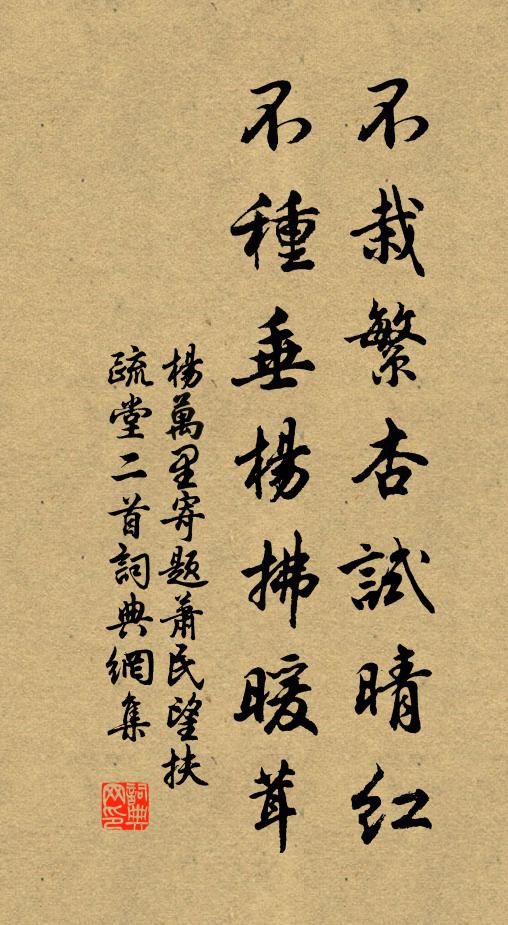 不栽繁杏試晴紅
不種垂楊拂暖茸
楊萬里寄題蕭民望扶
疏堂二首詞典網集
詞典
网印